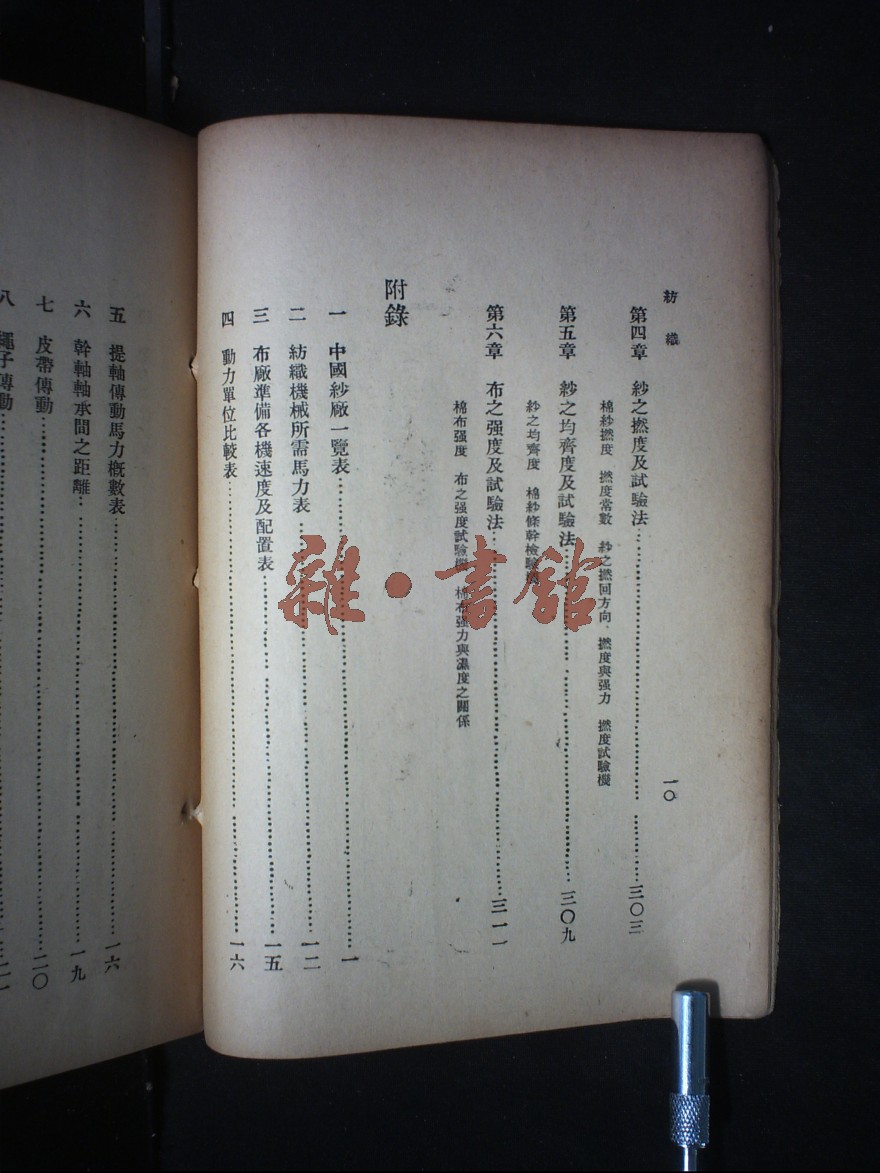 紡織
一〇
第四章　紗之撚度及試驗法……三〇三
棉紗撚度　撚度常數　紗之撚回方向　撚度與强力　撚度試驗機
第五章　紗之均齊度及試驗法……三〇九
紗之均齊度　棉紗條幹檢驗機
第六章　布之强度及試驗法……三一一
棉布强度　布之强度試驗機　棉布强力與濕度之關係
附錄
一　中國紗廠一覽表……一
二　紡織機械所需馬力表……一二
三　布廠準備各機速度及配置表……一五
四　動力單位比較表……一六
五　提軸傳動馬力概數表……一六
六　幹軸軸承間之距離……一九
七　皮帶傳動……二〇
八　繩子傳動……二一
雜·書館